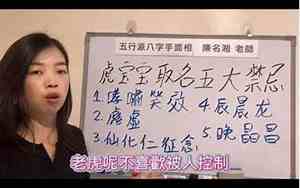 五行派八字手面相 陳名湘 老師
虎宝宝取名五大禁忌
1.嘹啸笑效 4.辰晨龙
2.虞虚
3.仙化仁征念 5.晚晶昌
老虎呢不喜歡被人控制